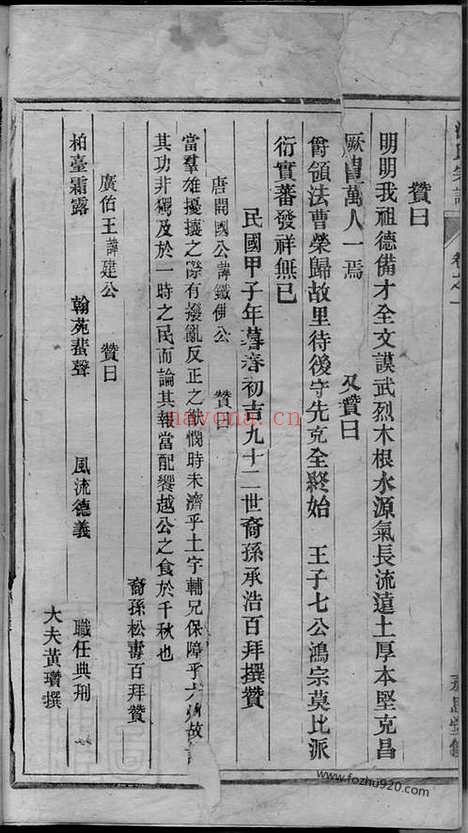 贊曰
明明我祖德備才全文謨武烈木根水源氣長流遠土厚本堅克昌
厥 萬人一焉　又贊曰
爵領法曹榮歸故里待後守先克全終始　王子七公鴻宗莫比派
衍實蕃發祥無已
民國甲子年暮春初吉九十二世裔孫承浩百拜撰贊
唐開國公諱鐵佛公　贊曰
當羣雄擾攘之際有撥亂反正之猷憫時未濟乎土宇輔兄保障乎六州故
其功非獨及於一時之民而論其報當配饗越公之食於千秋也
裔孫松壽百拜贊
廣伯王諱建公　贊曰
柏臺霜露　翰苑蜚聲　風流德義　職任典刑
大夫黃瓚撰
卷之一
nayona.cn
www.fozhu920.com